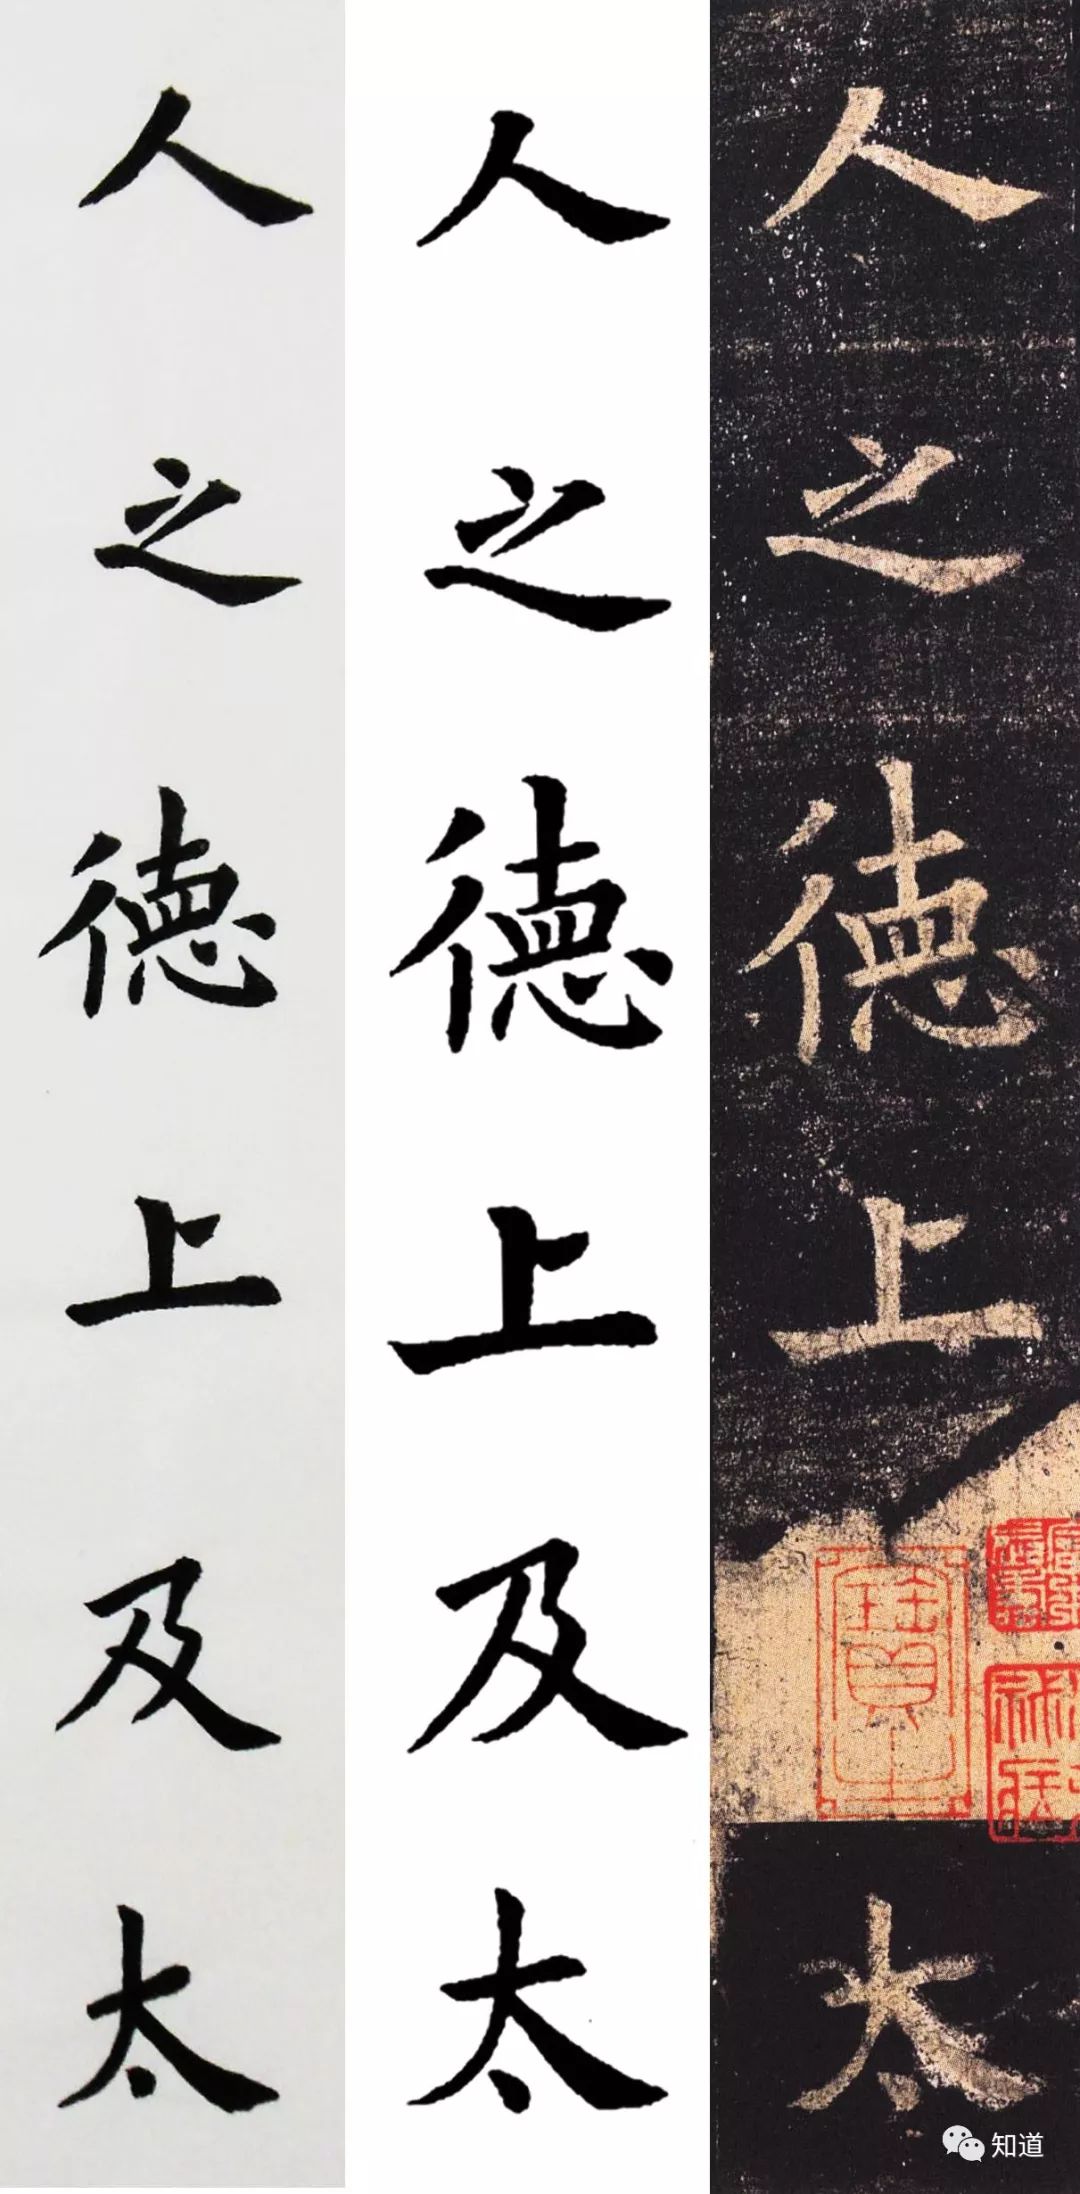 人之徳上及太
人之徳上及太
人之徳上太
知道